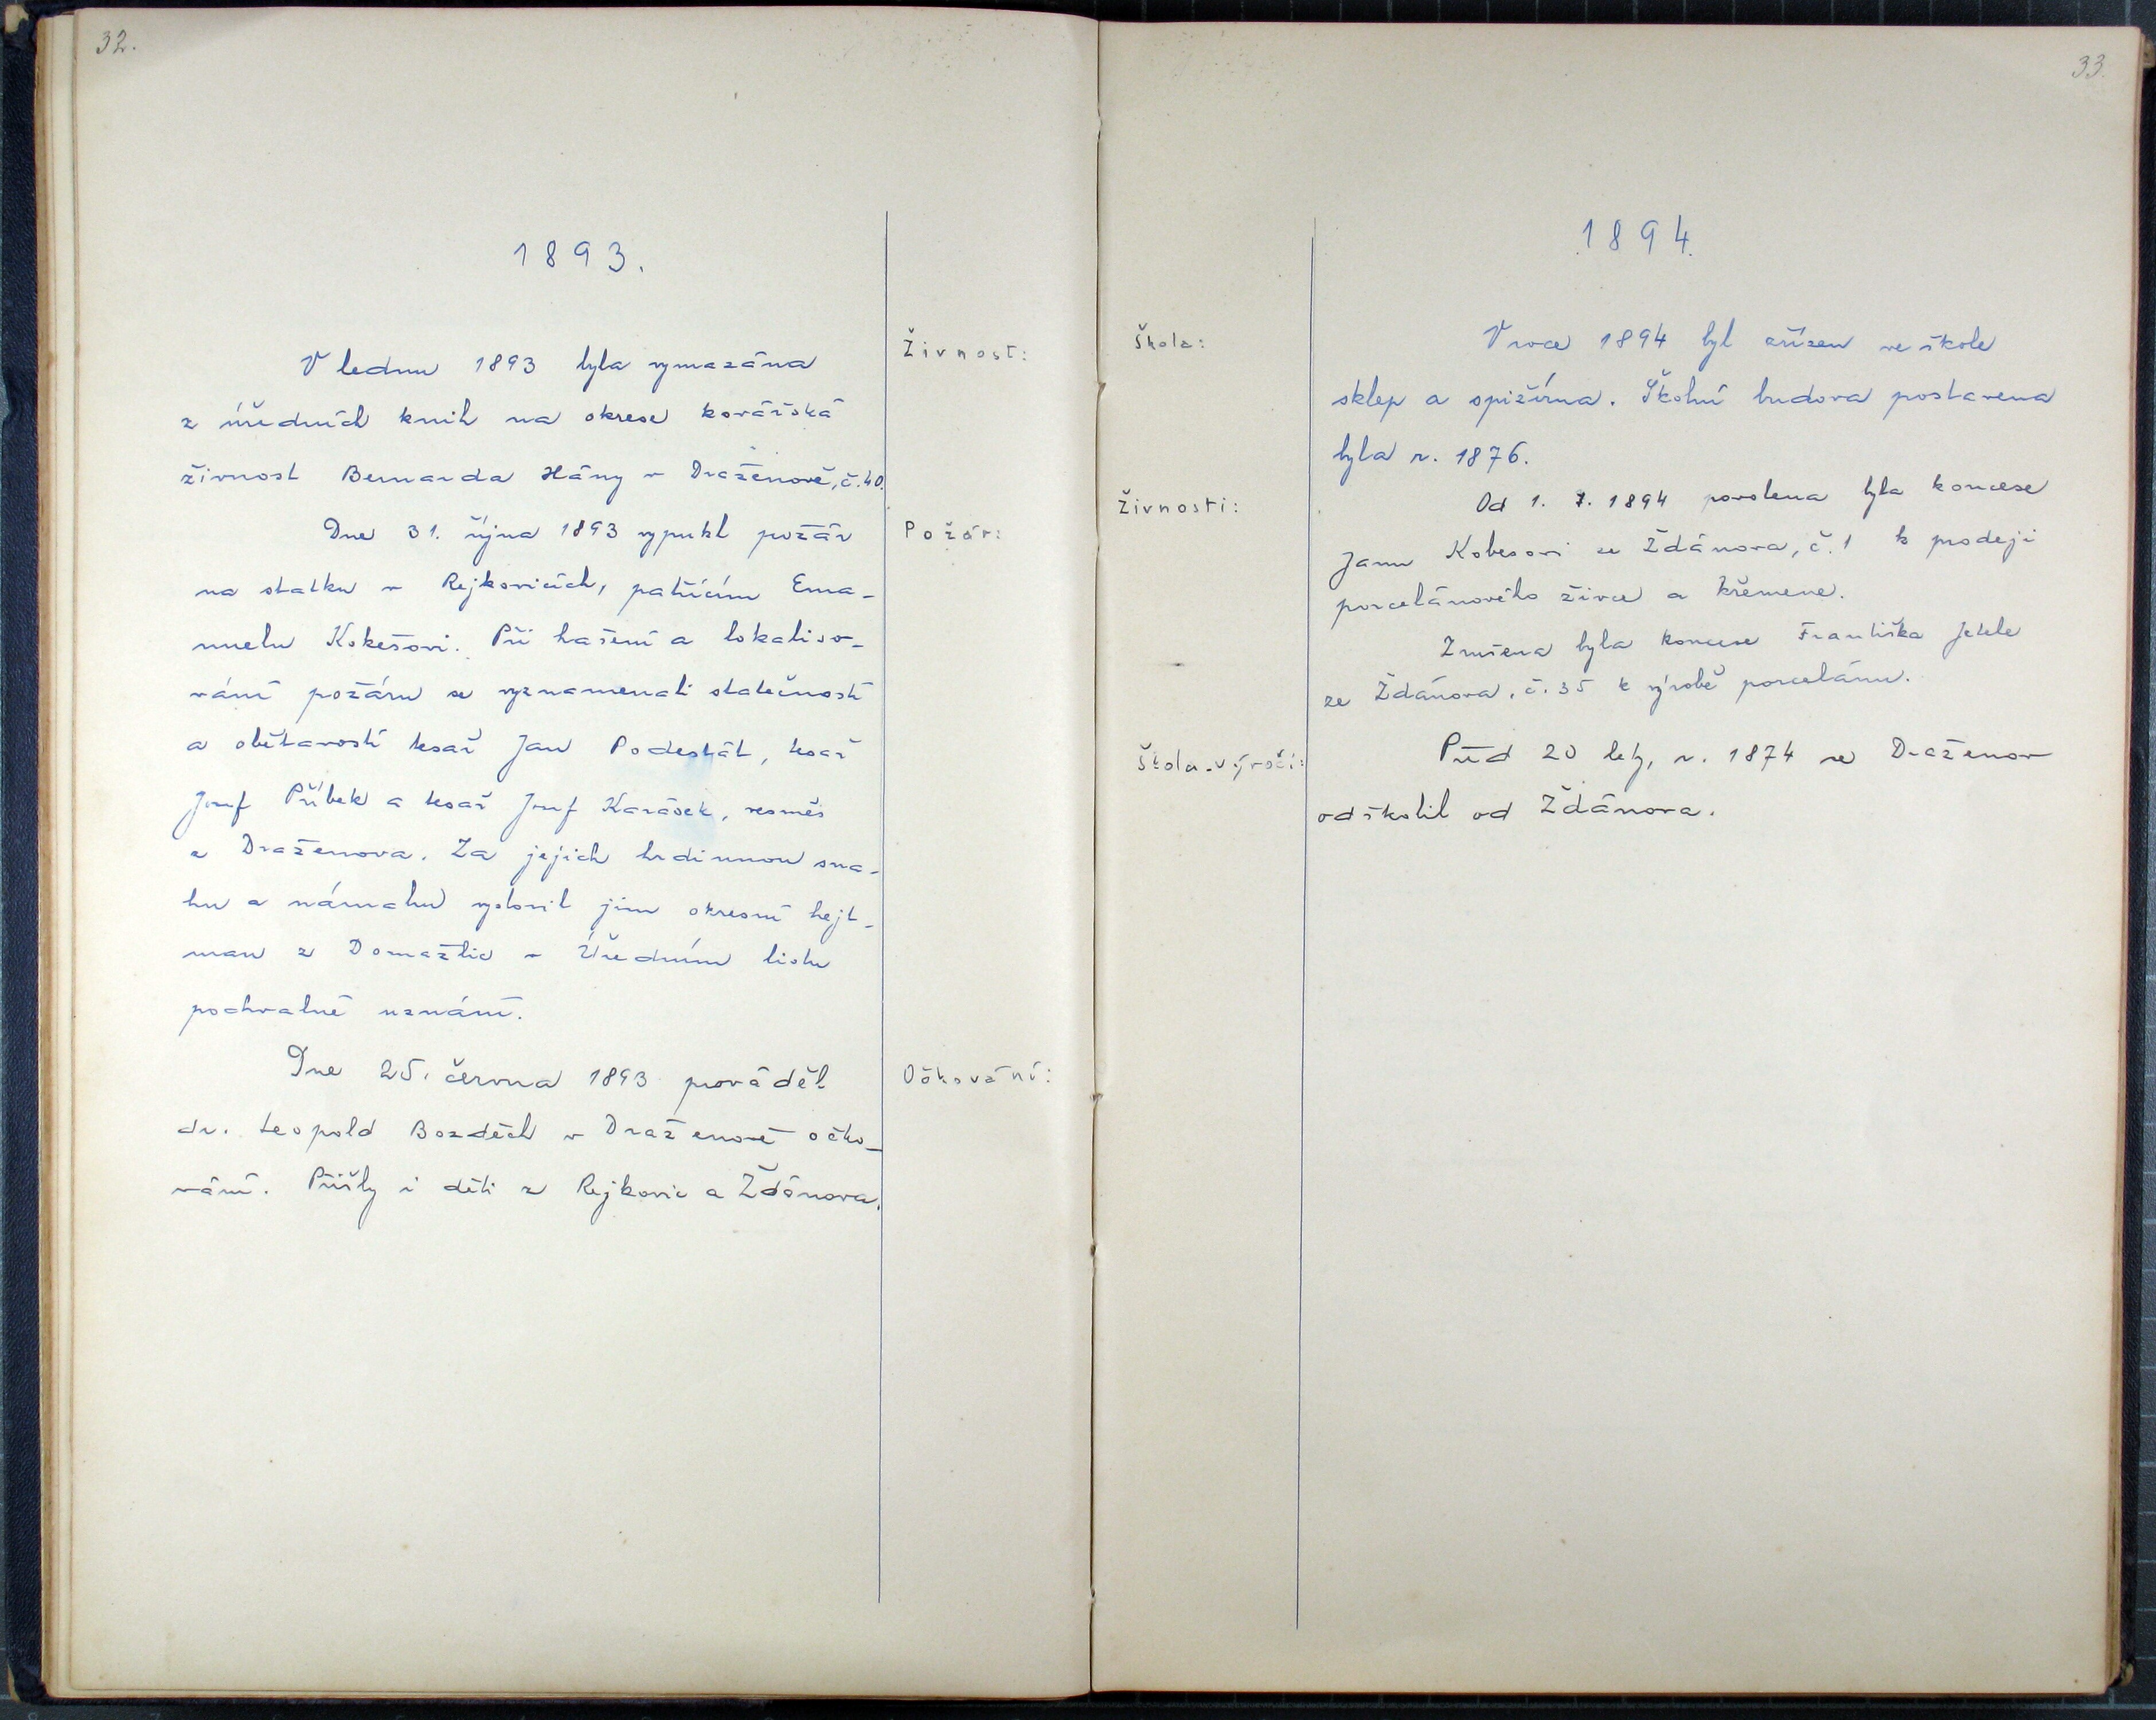 32.
1893.
Živnost:
V lednu 1893 byla vymazána
z úředních knih na okrese kovářská
živnost Bernarda Hány v Draženově, č. 40.
Požár:
Dne 31. října 1893 vypukl požár
na statku v Rejkovicích, patřícím Ema-
nuelu Kokešovi. Při hašení a lokaliso-
vání požáru se vyznamenali statečností
a obětavostí tesař Jan Podestát, tesař
Josef Příbek a tesař Josef Karásek, vesměs
z Draženova. Za jejich hrdinnou sna-
hu a námahu vyslovil jim okresní hejt-
man z Domažlic v Úředním listu
pochvalné uznání.
Očkování:
Dne 25. června 1893 prováděl
dr. Leopold Bozděch v Draženově očko-
vání. Přišly i děti z Rejkovic a Ždánova.
33.
1894.
Škola:
V roce 1894 byl zřízen ve škole
sklep a spižírna. Školní budova postavena
byla r. 1876.
Živnosti:
Od 1. 7. 1894 povolena byla koncese
Janu Kobesovi ze Ždánova, č. 1 k prodeji
porcelánového živce a křemene.
Zrušena byla koncese Františka Jetele
ze Ždánova, č. 35 k výrobě porcelánu.
Škola-výročí:
Před 20 lety, r. 1874 se Draženov
odškolil od Ždánova.